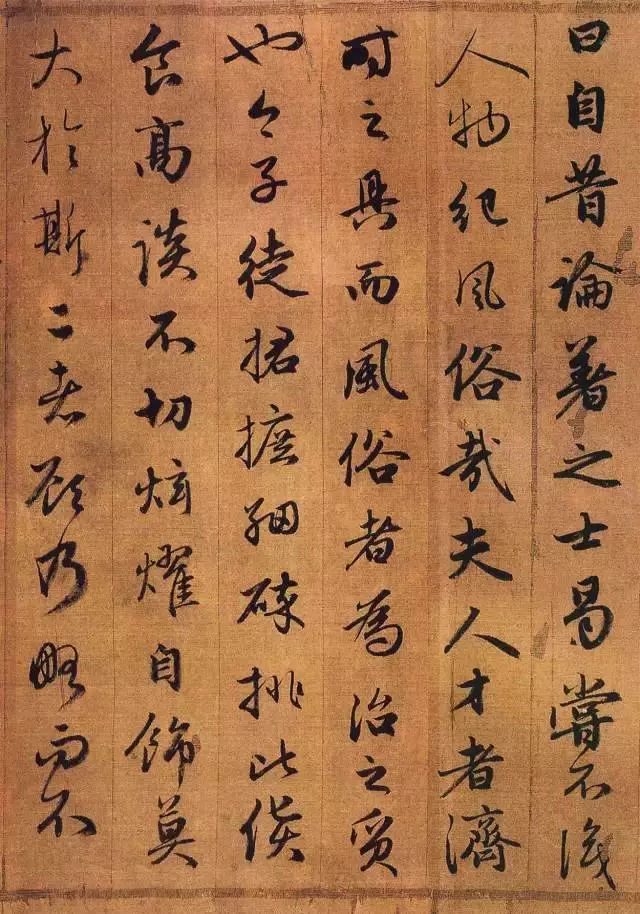 曰自昔論著之士曷嘗不識
人物紀風俗哉夫人才者濟
時之具而風俗者為治之質
也今子徒捃摭細碎排比貨
食高談不切炫燿自飾莫
大於斯二者顧乃略而不